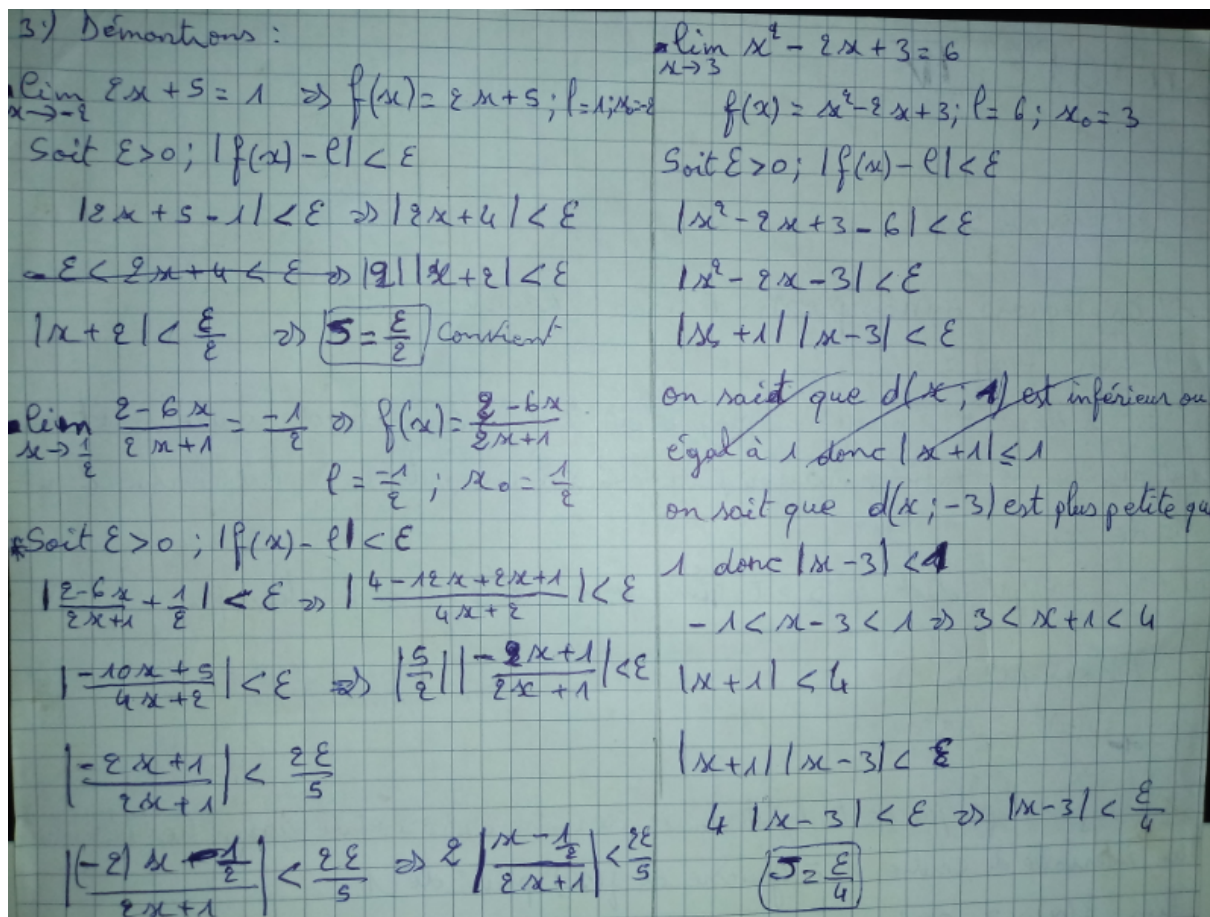 3°) Démontrons :
• lim 2x + 5 = 1 ⇒ f(x) = 2x + 5 ; l = 1 ; x₀ = -2
x→-2
Soit ε > 0 ; |f(x) - l| < ε
|2x + 5 - 1| < ε ⇒ |2x + 4| < ε
- ε < 2x + 4 < ε ⇒ |2| |x + 2| < ε
|x + 2| < ε/2 ⇒ δ = ε/2 Convient
• lim (2 - 6x)/(2x + 1) = -1/2 ⇒ f(x) = (2 - 6x)/(2x + 1)
x→1/2
l = -1/2 ; x₀ = 1/2
* Soit ε > 0 ; |f(x) - l| < ε
|(2 - 6x)/(2x + 1) + 1/2| < ε ⇒ |(4 - 12x + 2x + 1)/(4x + 2)| < ε
|(-10x + 5)/(4x + 2)| < ε ⇒ |5/2| |(-2x + 1)/(2x + 1)| < ε
|(-2x + 1)/(2x + 1)| < 2ε/5
|((-2) x - 1/2)/(2x + 1)| < 2ε/5 ⇒ 2 |(x - 1/2)/(2x + 1)| < 2ε/5
• lim x² - 2x + 3 = 6
x→3
f(x) = x² - 2x + 3 ; l = 6 ; x₀ = 3
Soit ε > 0 ; |f(x) - l| < ε
|x² - 2x + 3 - 6| < ε
|x² - 2x - 3| < ε
|x + 1| |x - 3| < ε
on sait que d(x ; 1) est inférieur ou
égal à 1 donc |x + 1| ≤ 1
on sait que d(x ; -3) est plus petite qu
1 donc |x - 3| < 1
- 1 < x - 3 < 1 ⇒ 3 < x + 1 < 4
|x + 1| < 4
|x + 1| |x - 3| < ε
4 |x - 3| < ε ⇒ |x - 3| < ε/4
δ = ε/4